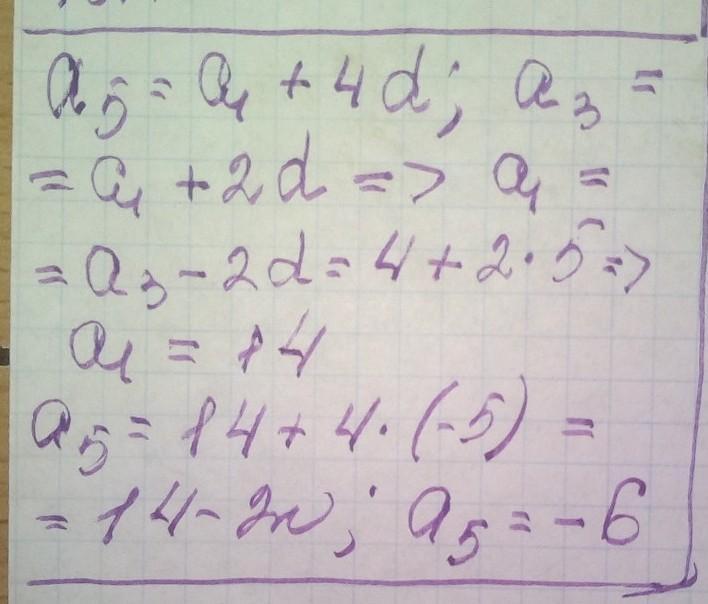 a₅ = a₁ + 4d; a₃ =
= a₁ + 2d => a₁ =
= a₃ - 2d = 4 + 2·5 =>
a₁ = 14
a₅ = 14 + 4·(-5) =
= 14 - 20; a₅ = -6